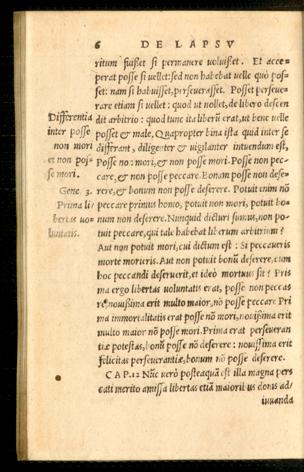 6 DE LAPSV
ritum fuisset si permanere voluisset. Et acce=
perat posse si uellet: sed non habebat uelle quo pos=
set: nam si habuisset, perseuerasset. Posset perseue=
rare etiam si uellet: quod ut nollet, de libero descen
dit arbitrio: quod tunc ita liberū erat, ut bene uelle
posset & male. Quapropter bina ista quid inter se
differant, diligenter & uigilanter intuendum est,
Posse nō mori, & non posse mori. Posse non pec=
care, & non posse peccare. Bonam posse non dese=
rere, & bonum non posse deserere. Potuit enim nō
peccare primus homo, potuit non mori, potuit bo=
num non deserere. Nunquid dicturi sumus, non po=
tuit peccare, qui tale habebat liberum arbitrium?
Aut non potuit mori, cui dictum est: Si peccaueris
morte morieris. Aut non potuit bonū deserere, cum
hoc peccandi deseruerit, et ideò mortuus sit? Pri=
ma ergo libertas voluntatis erat, posse non pecca=
re, nouissima erit multo maior, nō posse peccare Pri
ma immortalitatis erat posse nō mori, nouissima erit
multo maior nō posse mori. Prima erat perseueran
tiæ potestas, bonū posse nō deserere: nouissima erit
felicitas perseuerantiæ, bonum nō posse deserere.
CAP. 12 Nūc verò posteaquā est illa magna pec
cati merito amissa libertas etiā maioribus donis ad/
iuuanda
Differentia
inter posse
non mori
et non pos=
se mori.
Gene. 3.
Prima li
bertas uo=
luntatis.